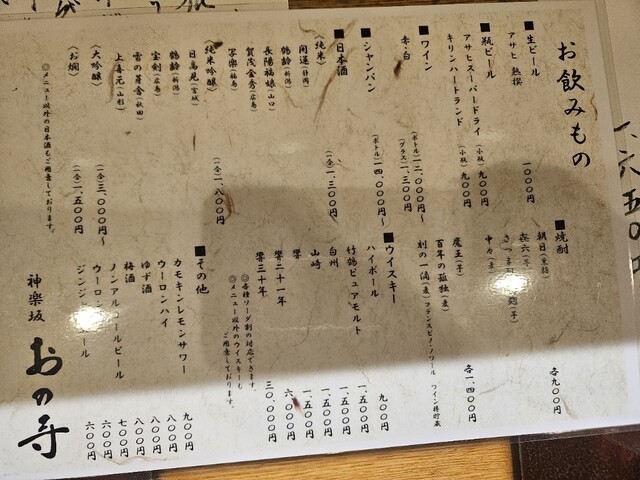 お飲みもの
■生ビール
アサヒ 熟撰 一〇〇〇円
■瓶ビール
アサヒスーパードライ (小瓶) 九〇〇円
キリンハートランド (小瓶) 九〇〇円
■ワイン
赤・白 (ボトル) 一二、〇〇〇円〜
(グラス) 一、三〇〇円
■シャンパン
(ボトル) 一四、〇〇〇円〜
■日本酒
〈純米〉 (一合) 一、三〇〇円
開運(静岡)
鶴齢(新潟)
長陽福娘(山口)
賀茂金秀(広島)
写楽(福島)
〈純米吟醸〉 (一合) 一、八〇〇円
日高見(宮城)
鶴齢(新潟)
宝剣(広島)
雪の茅舎(秋田)
上喜元(山形)
〈大吟醸〉 (一合) 三、〇〇〇円〜
〈お燗〉 (一合) 一、五〇〇円
◎メニュー以外の日本酒もご用意しております。
■焼酎
朝日(黒糖) 各九〇〇円
㐂六(芋)
さつま
中々(麦)
魔王(芋) 各一、四〇〇円
百年の孤独(麦)
刻の一滴(麦) フランスピノ・ノワール ワイン樽貯蔵
■ウイスキー
ハイボール 九〇〇円
竹鶴ピュアモルト 一、五〇〇円
白州 一、五〇〇円
山崎 一、五〇〇円
響 一、五〇〇円
響二十一年 六、〇〇〇円
響三十年 三〇、〇〇〇円
◎各種ソーダ割の対応できます。
◎メニュー以外のウイスキーも
ご用意しております。
■その他
カモキンレモンサワー 九〇〇円
ウーロンハイ 八〇〇円
ゆず酒 八〇〇円
梅酒 八〇〇円
ノンアルコールビール 七〇〇円
ウーロン 六〇〇円
ジンジ ール 六〇〇円
神楽坂 おの寺
一六五〇円